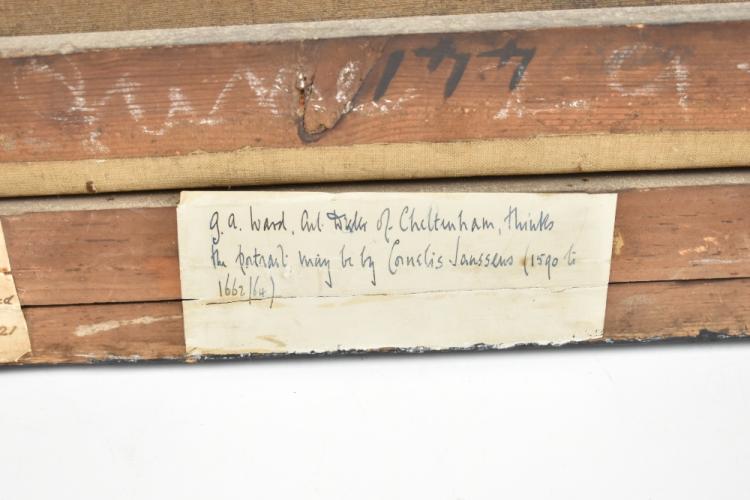 144
G. A. Ward, Art Dealer of Cheltenham, thinks
the portrait may be by Cornelis Janssens (1590 to
1662/64)
21